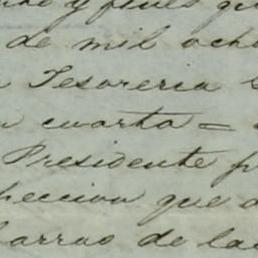 y fines que
de mil ocho
Tesoreria
cuarta =
Presidente p
heccion que
barras de la